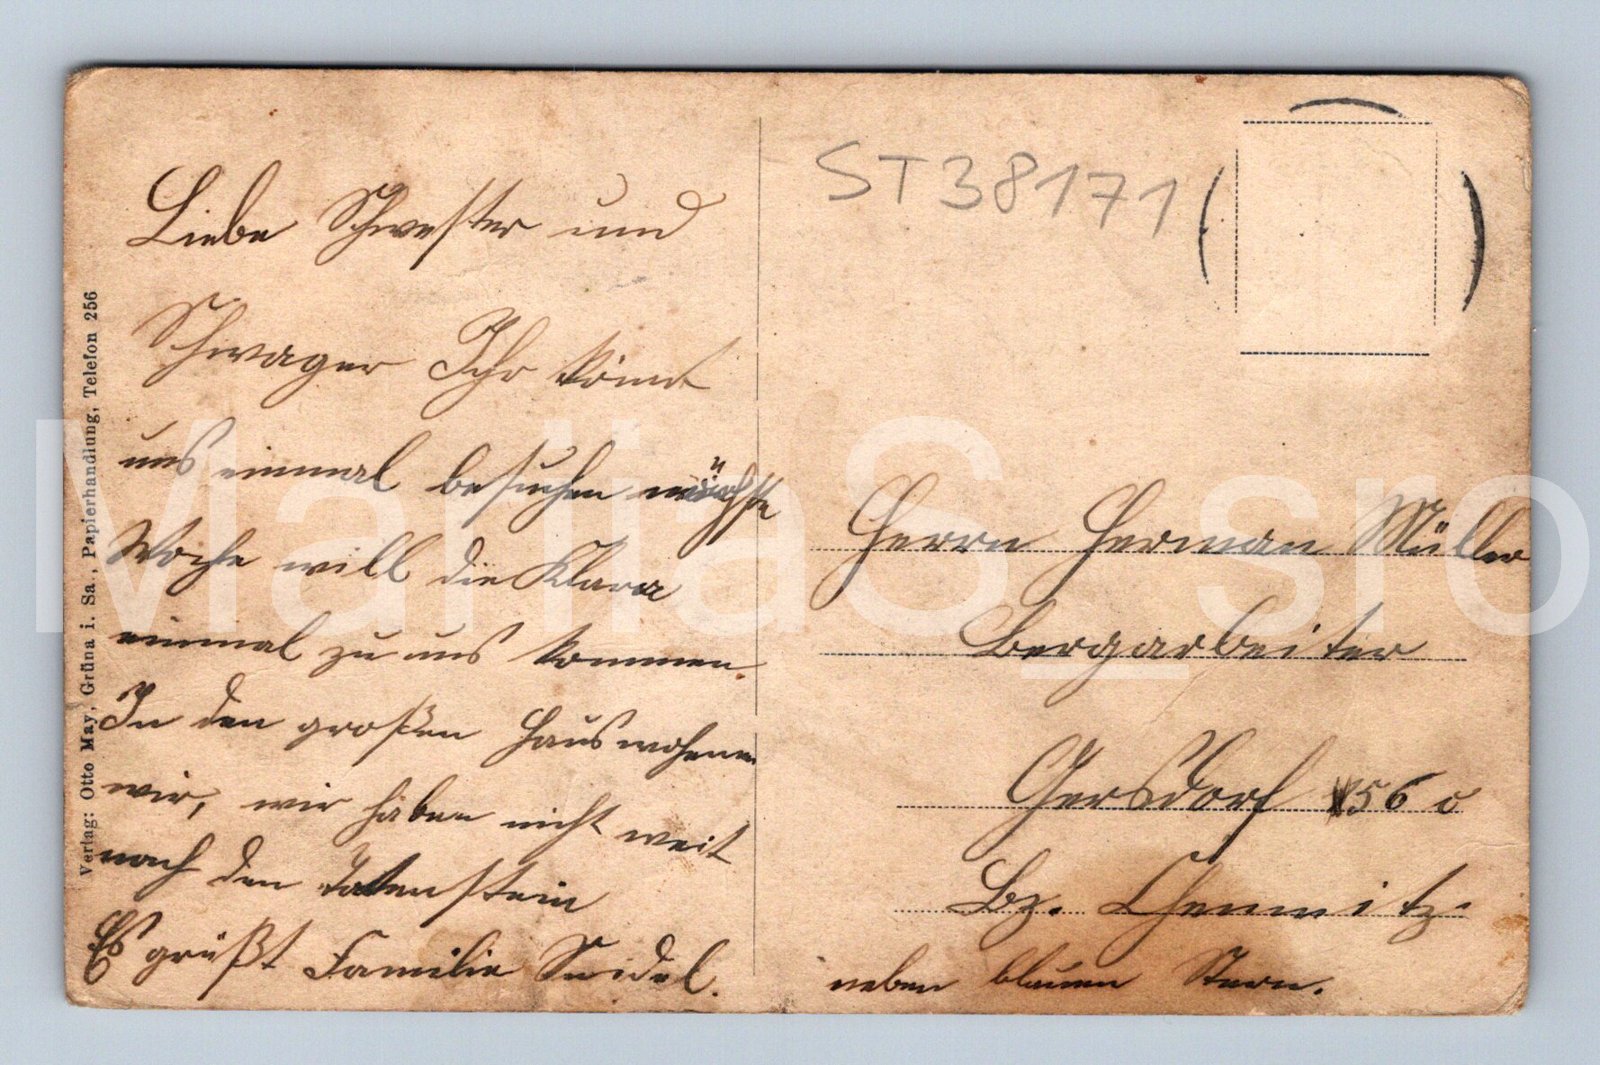 Liebe Schwester und
Schwager Ihr könnt
uns einmal besuchen nächste
Woche will die Klara
einmal zu uns kommen.
In den großen Haus wohnen
wir, wir haben nicht weit
nach den Totenstein
Es grüßt Familie Seidel.
Verlag: Otto May, Grüna i. Sa., Papierhandlung, Telefon 256
ST38171
Herrn Herman Müller
Bergarbeiter
Gersdorf 56 c
Bz. Chemnitz.
neben blauen Stern.
MariiaS_sro